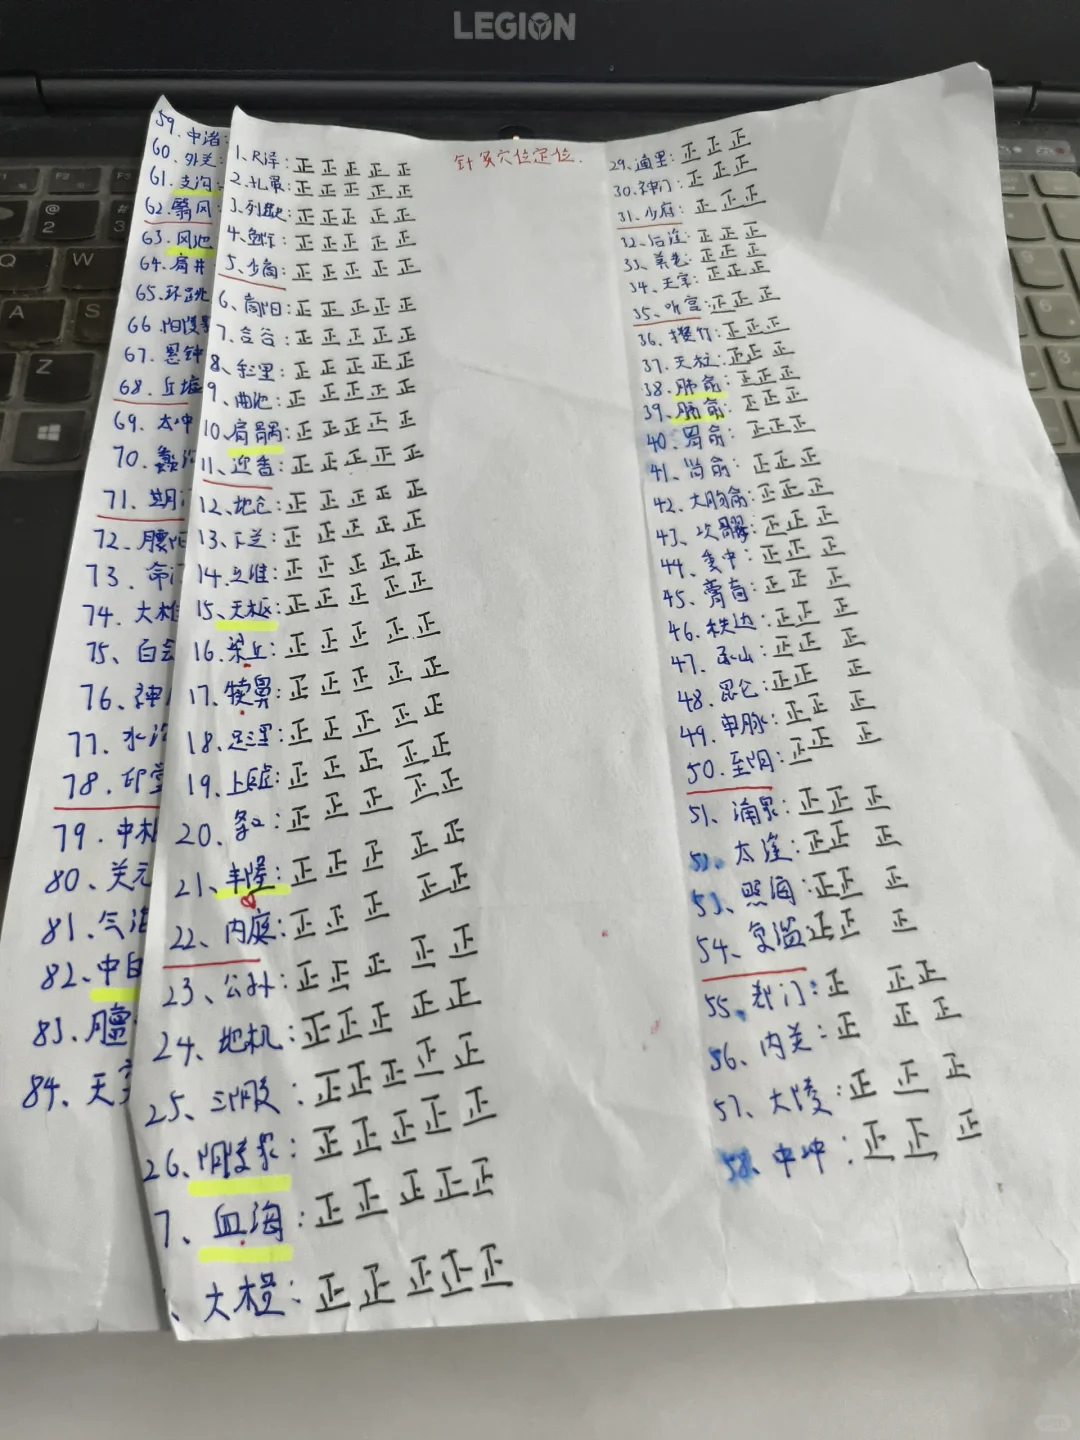 LEGION
针灸穴位定位.
59.中渚:
60.外关
61.支沟
62.翳风
63.风池
64.肩井
65.环跳
66.阳陵
67.悬钟
68.丘墟
69.太冲
70.蠡
71.期门
72.腰阳
73.命门
74.大椎
75、百会
76、神
77.水沟
78.印堂
79.中极
80、关元
81.气海
82.中
83.膻
84、天
1、尺泽:正正正正正
2.孔最:正正正正正
3.列缺:正正正正正
4.鱼际:正正正正正
5、少商:正正正正正
6、商阳:正正正正正
7、合谷:正正正正正
8、手三里:正正正正正
9、曲池:正正正正正
10、肩髃:正正正正正
11、迎香:正正正正正
12、地仓:正正正正正
13、下关:正正正正正
14.头维:正正正正正
15、天枢:正正正正正
16.梁丘:正正正正正
17.犊鼻:正正正正正
18.足三里:正正正正正
19.上巨虚:正正正正正
20.条口:正正正正正
21、丰隆:正正正正正
22、内庭:正正正正正
23、公孙:正正正正正
24、地机:正正正正正
25、三阴交:正正正正正
26、阴陵泉:正正正正正
7、血海:正正正正正
、大横:正正正正正
29.通里:正正正
30.神门:正正正
31.少府:正正正
32.后溪:正正正
33、养老:正正正
34、天宗:正正正
35、听宫:正正正
36.攒竹:正正正
37.天柱:正正正
38.肺俞:正正正
39.膈俞:正正正
40、胃俞:正正正
41、肾俞:正正正
42、大肠俞:正正正
43、次髎:正正正
44、委中:正正正
45、膏肓:正正正
46、秩边:正正正
47、承山:正正正
48、昆仑:正正正
49、申脉:正正正
50.至阴:正正正
51、涌泉:正正正
52、太溪:正正正
53、照海:正正正
54、复溜:正正正
55、郄门:正正正
56、内关:正正正
57、大陵:正正正
58、中冲:正正正